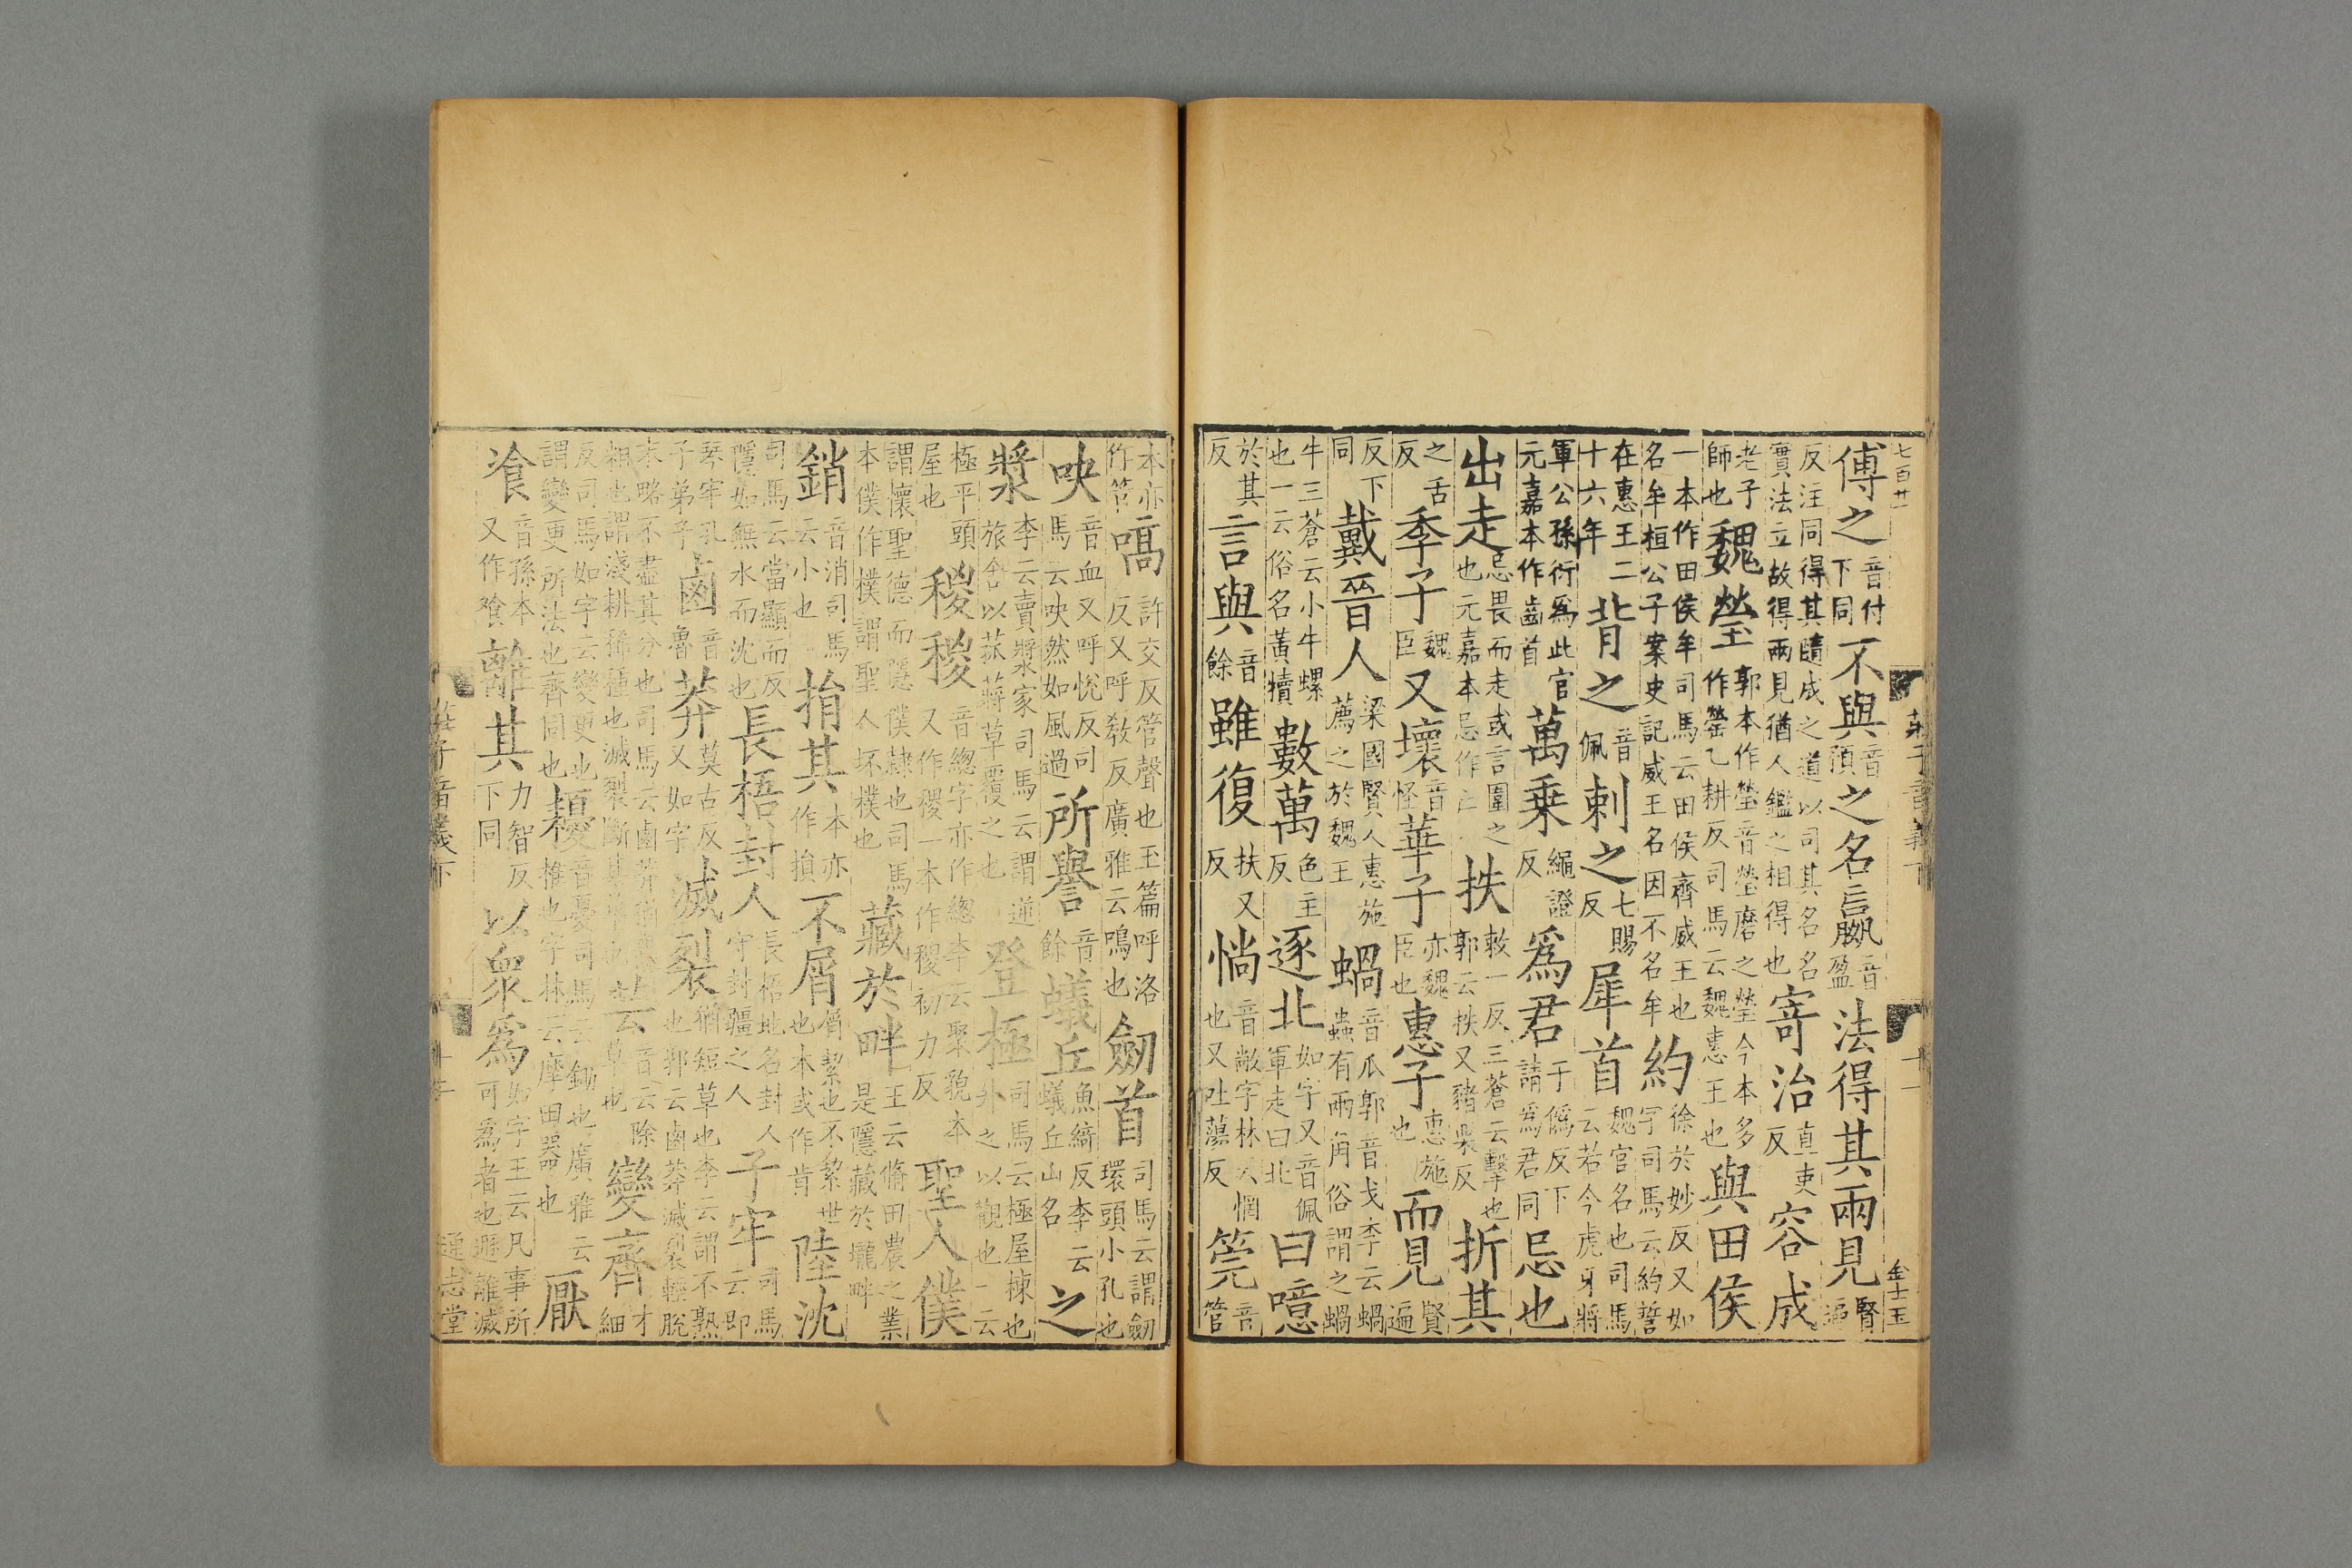 七百廿一 莊子音義下 十一 金士玉
傅之音付下同不與音預之名嬴音盈法得其兩見賢遍
反注同得其隨成之道以司其名名實法立故得兩見猶人鑑之相得也寄治直吏反容成
老子師也魏瑩郭本作瑩音瑩磨之瑩今本多作罃乙耕反司馬云魏惠王也與田侯
一本作田侯牟司馬云田侯齊威王也名牟桓公子案史記威王名因不名牟約徐於妙反又如字司馬云約誓
在惠王二十六年背之音佩刺之七賜反犀首魏官名也司馬云若今虎牙將
軍公孫衍爲此官元嘉本作齒首萬乗繩證反爲君于僞反下請爲君同忌也
出走忌畏而走或言圍之也元嘉本忌作亡抶敕一反三蒼云擊也郭云抶又豬栗反折其
之舌反季子魏臣又壞音怪華子亦魏臣也惠子惠施也而見賢遍
反下同戴晉人梁國賢人惠施薦之於魏王蝸音瓜郭音戈李云蝸蟲有兩角俗謂之蝸
牛三蒼云小牛螺也一云俗名黃犢數萬色主反逐北如字又音佩軍走曰北曰噫
於其反言與音餘雖復扶又反惝音敞字林云惘也又吐蕩反筦音管
本亦作管嗃許交反管聲也玉篇呼洛反又呼敎反廣雅云鳴也劒首司馬云謂劒環頭小孔也
吷音血又呼悅反司馬云吷然如風過所譽音餘蟻丘魚綺反李云蟻丘山名之
漿李云賣漿家司馬云謂逆旅舍以菰蔣草覆之也登極司馬云極屋棟也升之以觀也一云
極平頭屋也稯稯音總字亦作總李云聚貌本又作稷一本作稷初力反聖人僕
謂懷聖德而隱僕隷也司馬本僕作樸謂聖人坏樸也藏於畔王云脩田農之業是隱藏於壠畔
銷音消司馬云小也捐其本亦作損不屑屑絜也不絜世也本或作肯陸沈
司馬云當顯而反隱如無水而沈也長梧封人長梧地名封人守封疆之人子牢司馬云即
琴牢孔子弟子鹵音魯莽莫古反又如字滅裂猶短草也李云謂不熟也郭云鹵莽滅裂輕脫
末略不盡其分也司馬云鹵莽猶麤粗也謂淺耕稀種也滅裂斷其草也芸音云除草也變齊才細
反司馬如字云變更也謂變更所法也齊同也耰音憂司馬云鋤也廣雅云推也字林云摩田器也厭
飧音孫本又作飱離其力智反下同以衆爲如字王云凡事所可爲者也遁離滅
莊子音義下 十二 通志堂